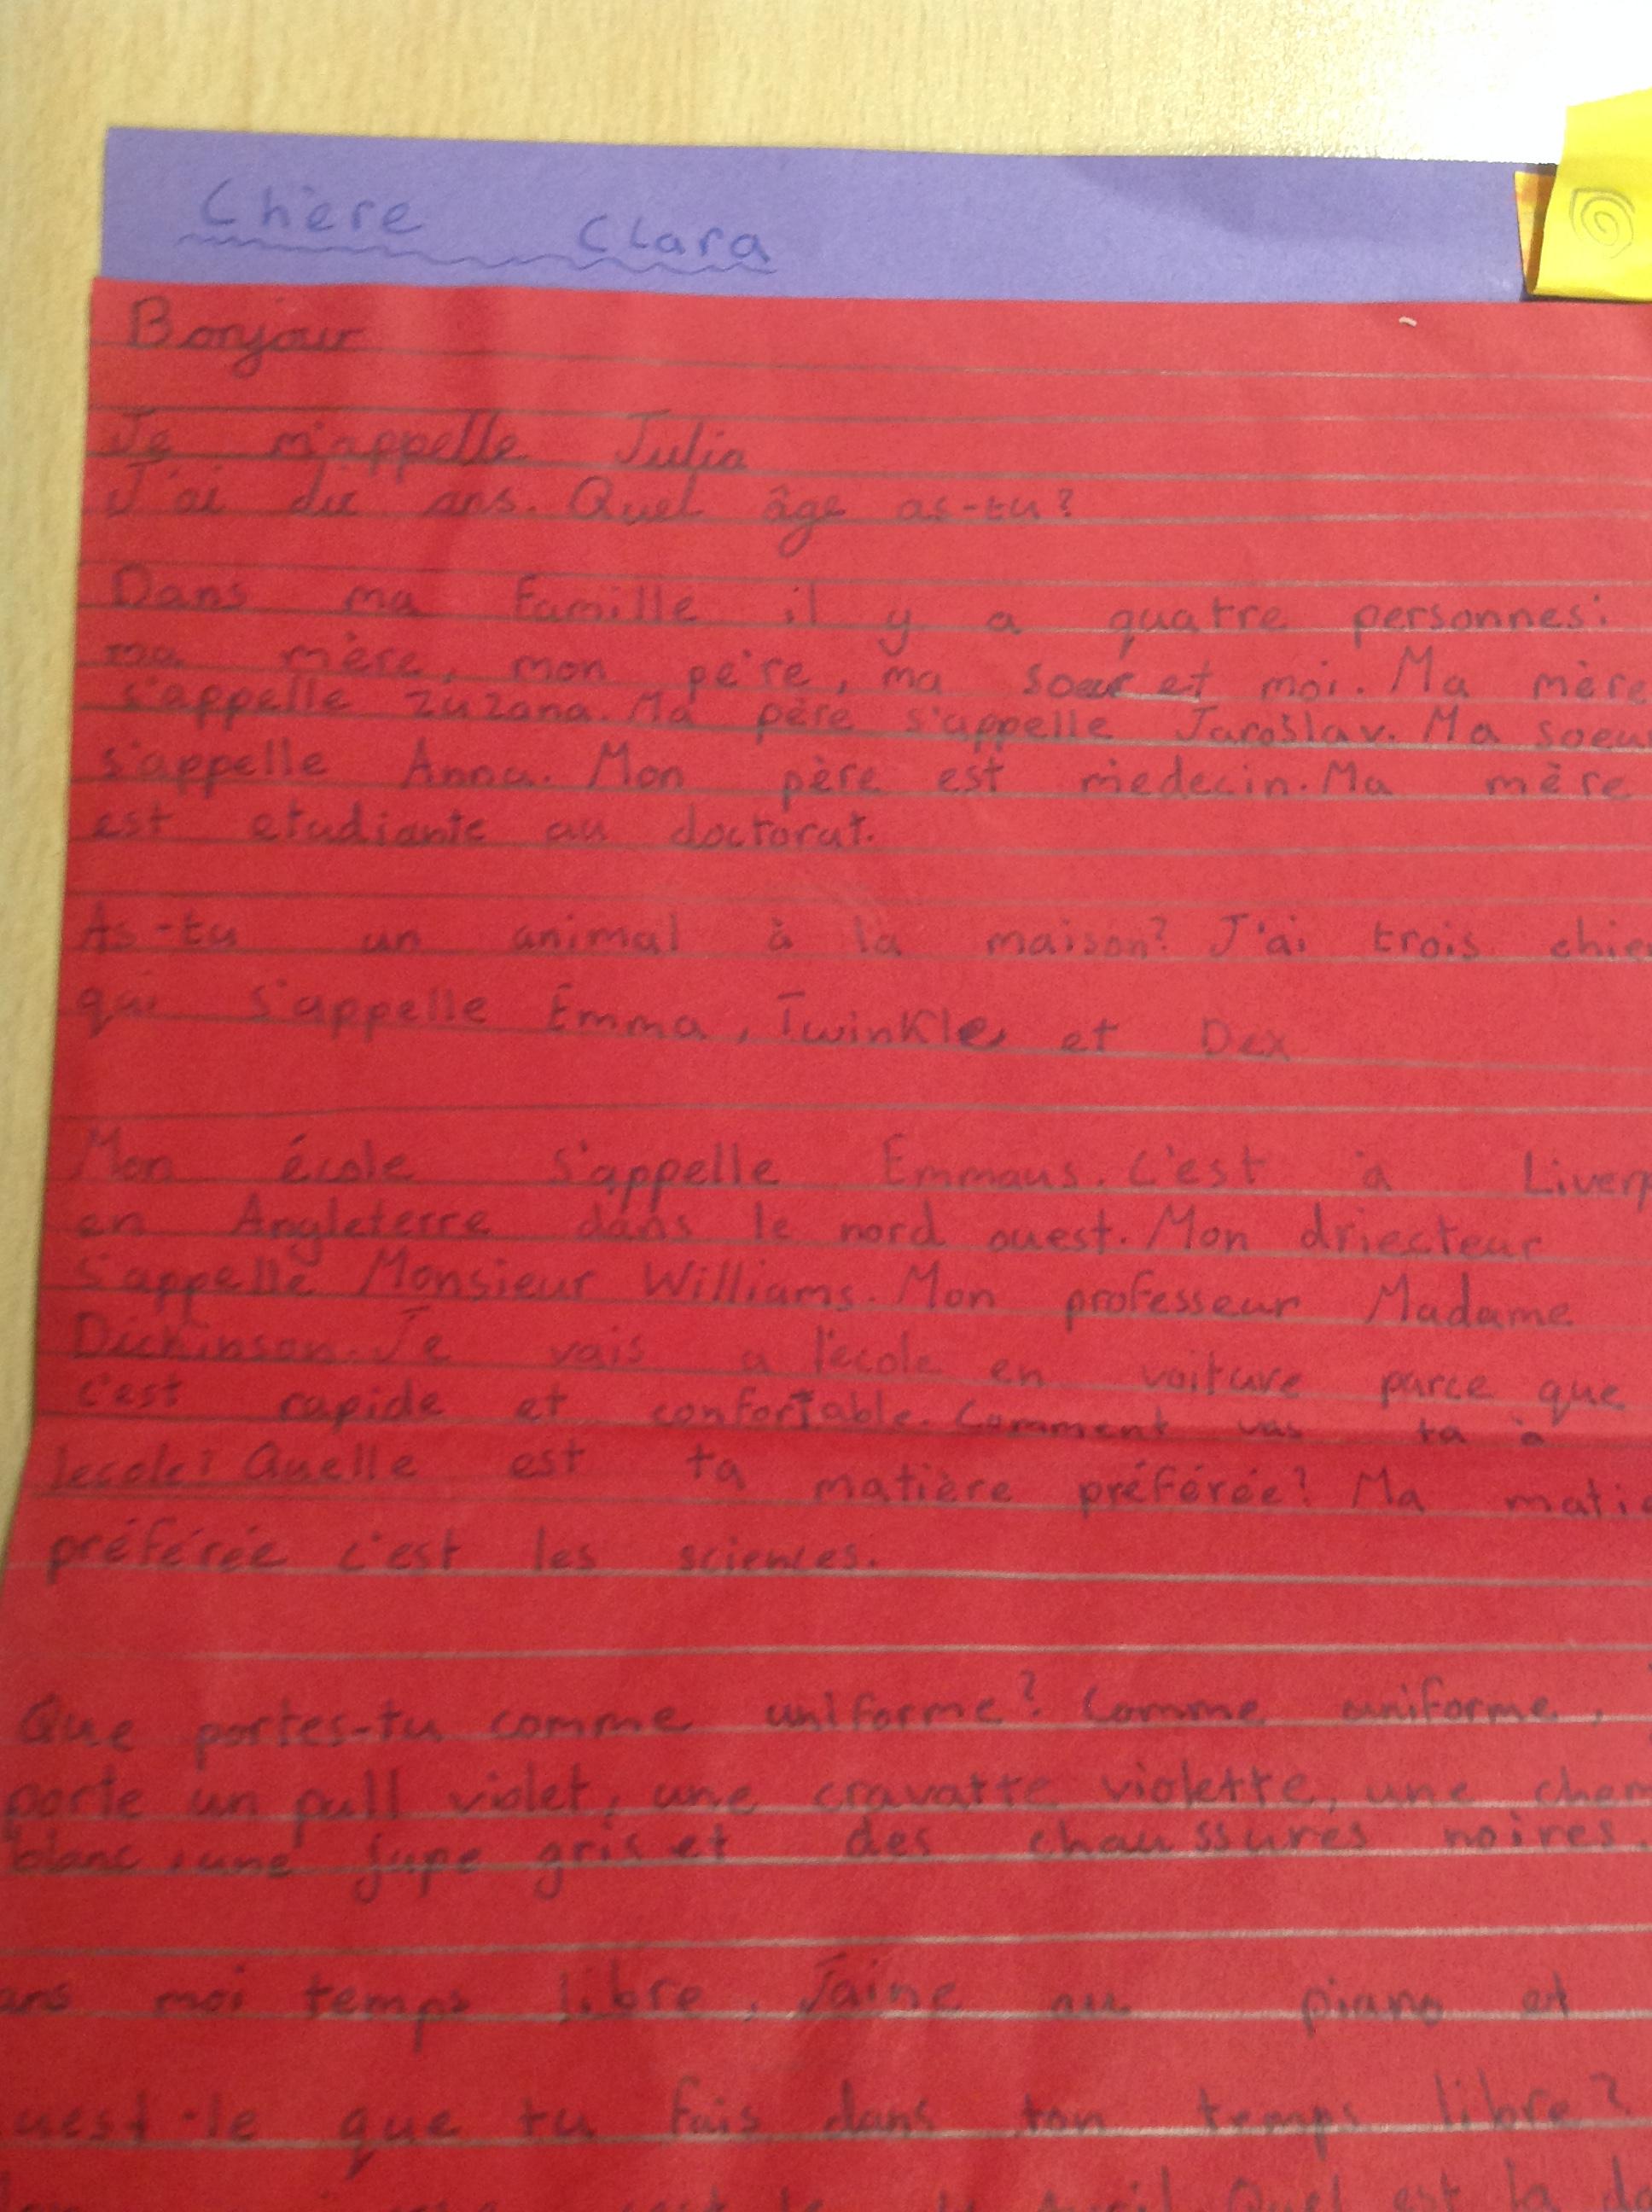 Chère Clara
Bonjour
Je m'appelle Julia
J'ai dix ans. Quel âge as-tu?
Dans ma famille il y a quatre personnes:
ma mère, mon père, ma soeur et moi. Ma mère
s'appelle Zuzana. Ma père s'appelle Jaroslav. Ma soeur
s'appelle Anna. Mon père est medecin. Ma mère
est etudiante au doctorat.
As-tu un animal à la maison? J'ai trois
qui s'appelle Emma, Twinkle, et Dex
Mon école s'appelle Emmaus. C'est à
en Angleterre dans le nord ouest. Mon driecteur
s'appelle Monsieur Williams. Mon professeur Madame
Dickinson. Je vais a l'ecole en voiture parce que
c'est rapide et confortable. Comment vas ta à
lecole? Quelle est ta matière préférée? Ma
préférée c'est les sciences.
Que portes-tu comme uniforme? Comme uniforme,
porte un pull violet, une cravatte violette, une
blanc, une jupe gris et des chaussures noires.
moi temps libre, J'aine au piano et
que tu fais dans ton temps libre?
Avril Quel est la